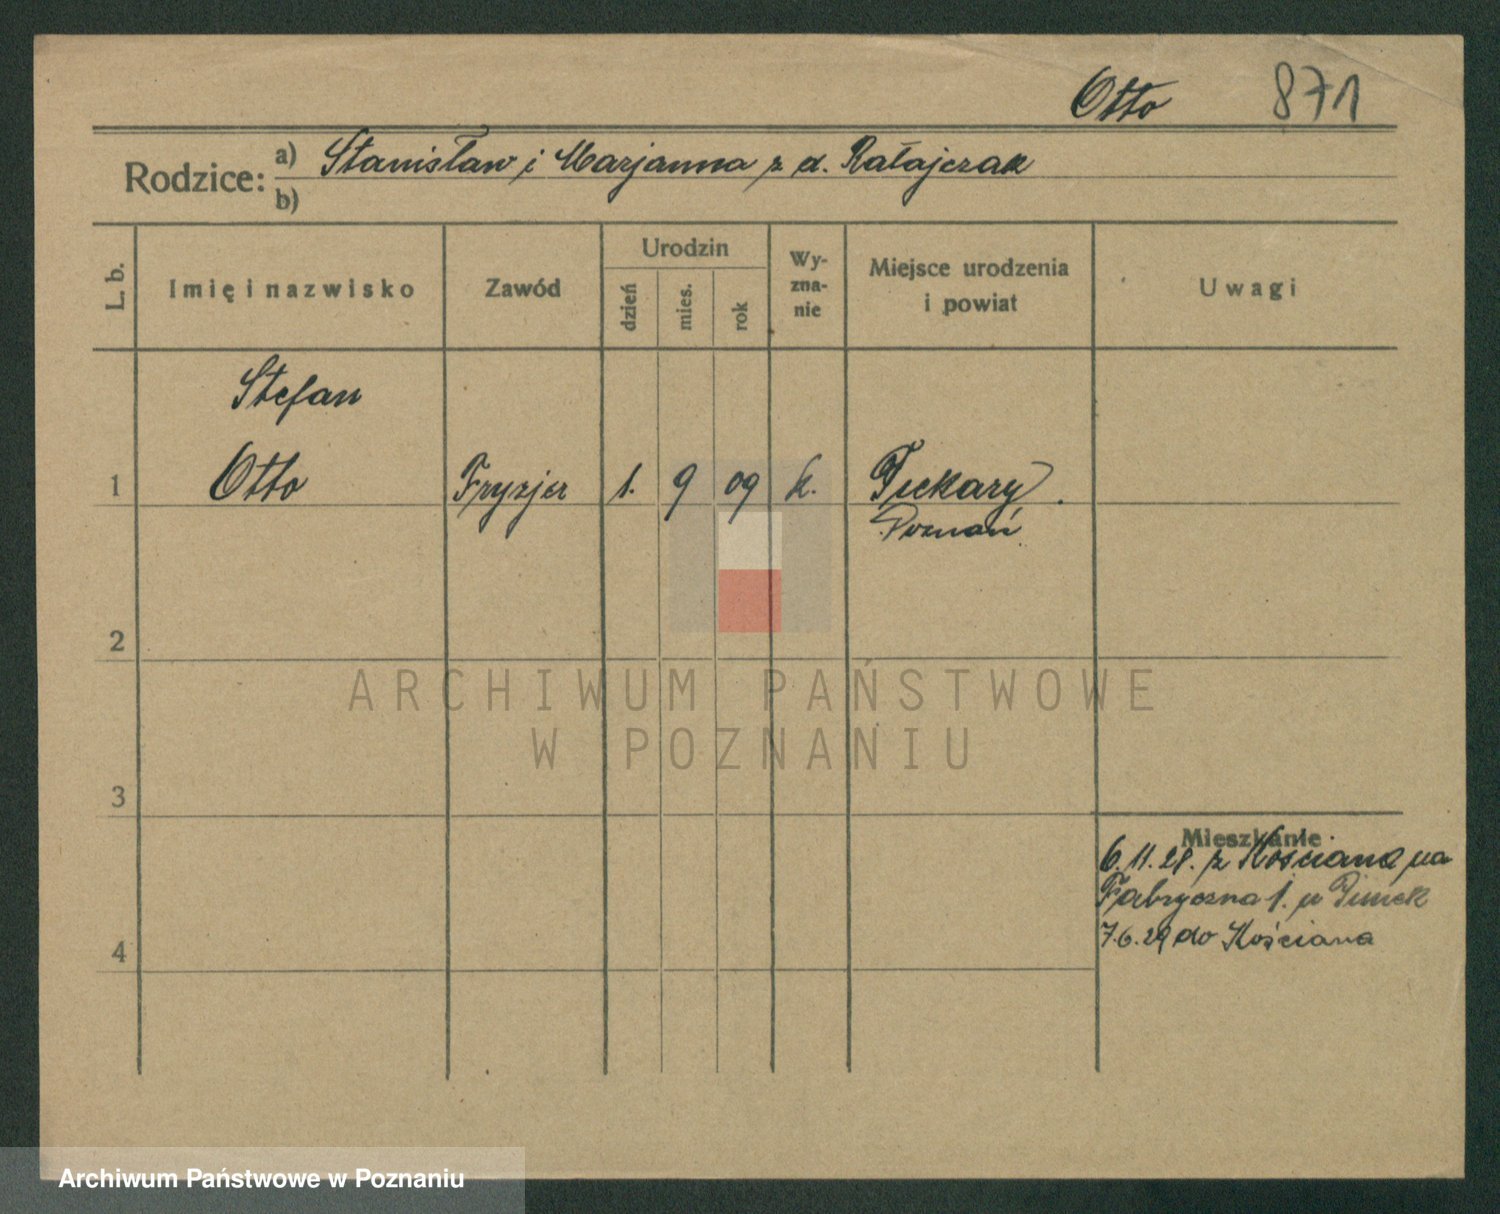 Otto 871
Rodzice: a) Stanisław i Marjanna z d. Ratajczak
b)
L. b.
Imię i nazwisko
Zawód
Urodzin
dzień
mies.
rok
Wy-
zna-
nie
Miejsce urodzenia
i powiat
Uwagi
Stefan
1 Otto Fryzjer 1. 9 09 k. Piekary.
Poznań
2
ARCHIWUM PAŃSTWOWE
W POZNANIU
3
Mieszkanie
6.11.28. z Kościana na
Fabryczna 1. u
7.6.29 do Kościana
4
Archiwum Państwowe w Poznaniu